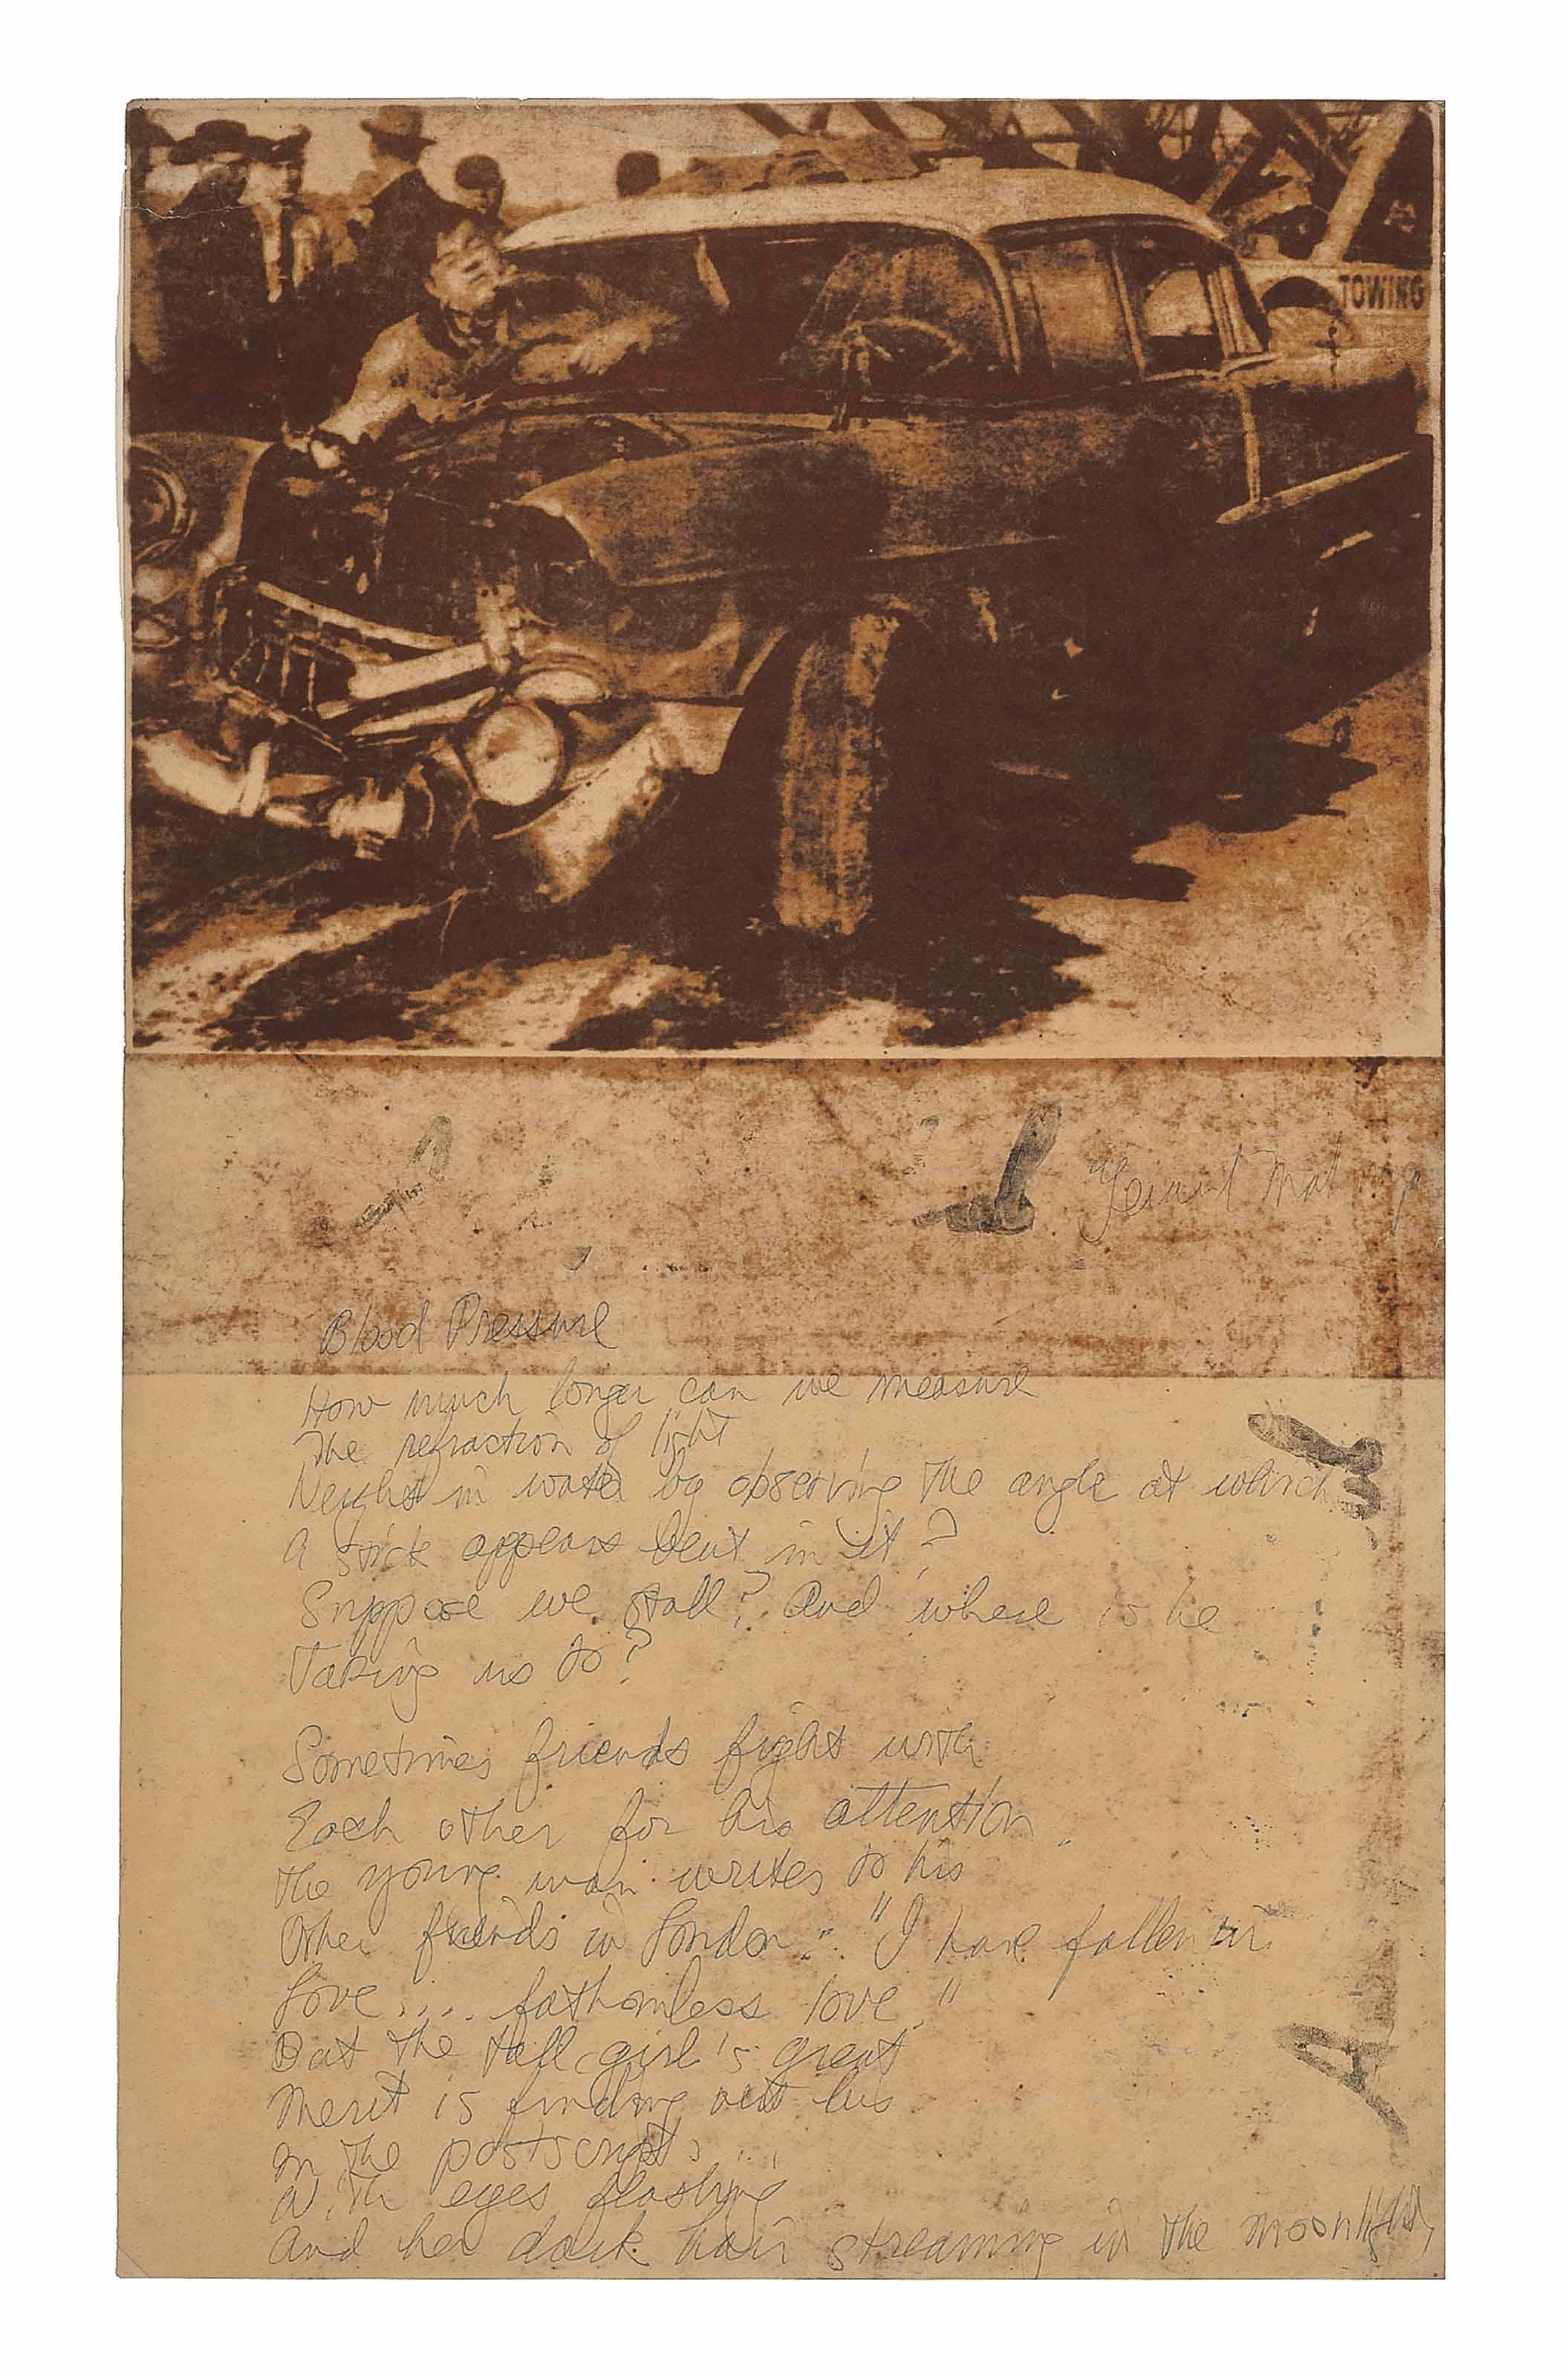 TOWING
Gerard Malanga
Blood Pressure
How much longer can we measure
The refraction of light
in water by observing the angle at which
A stick appears bent in it?
Suppose we stall? And where is he
Taking us to?
Sometimes friends fight with
Each other for his attention.
The young man writes to his
Other friends in London: "I have fallen in
Love.... fathomless love."
But the tall girl's great
Merit is finding out his
In the postscripts....
With eyes flashing
And her dark hair streaming in the moonlight,